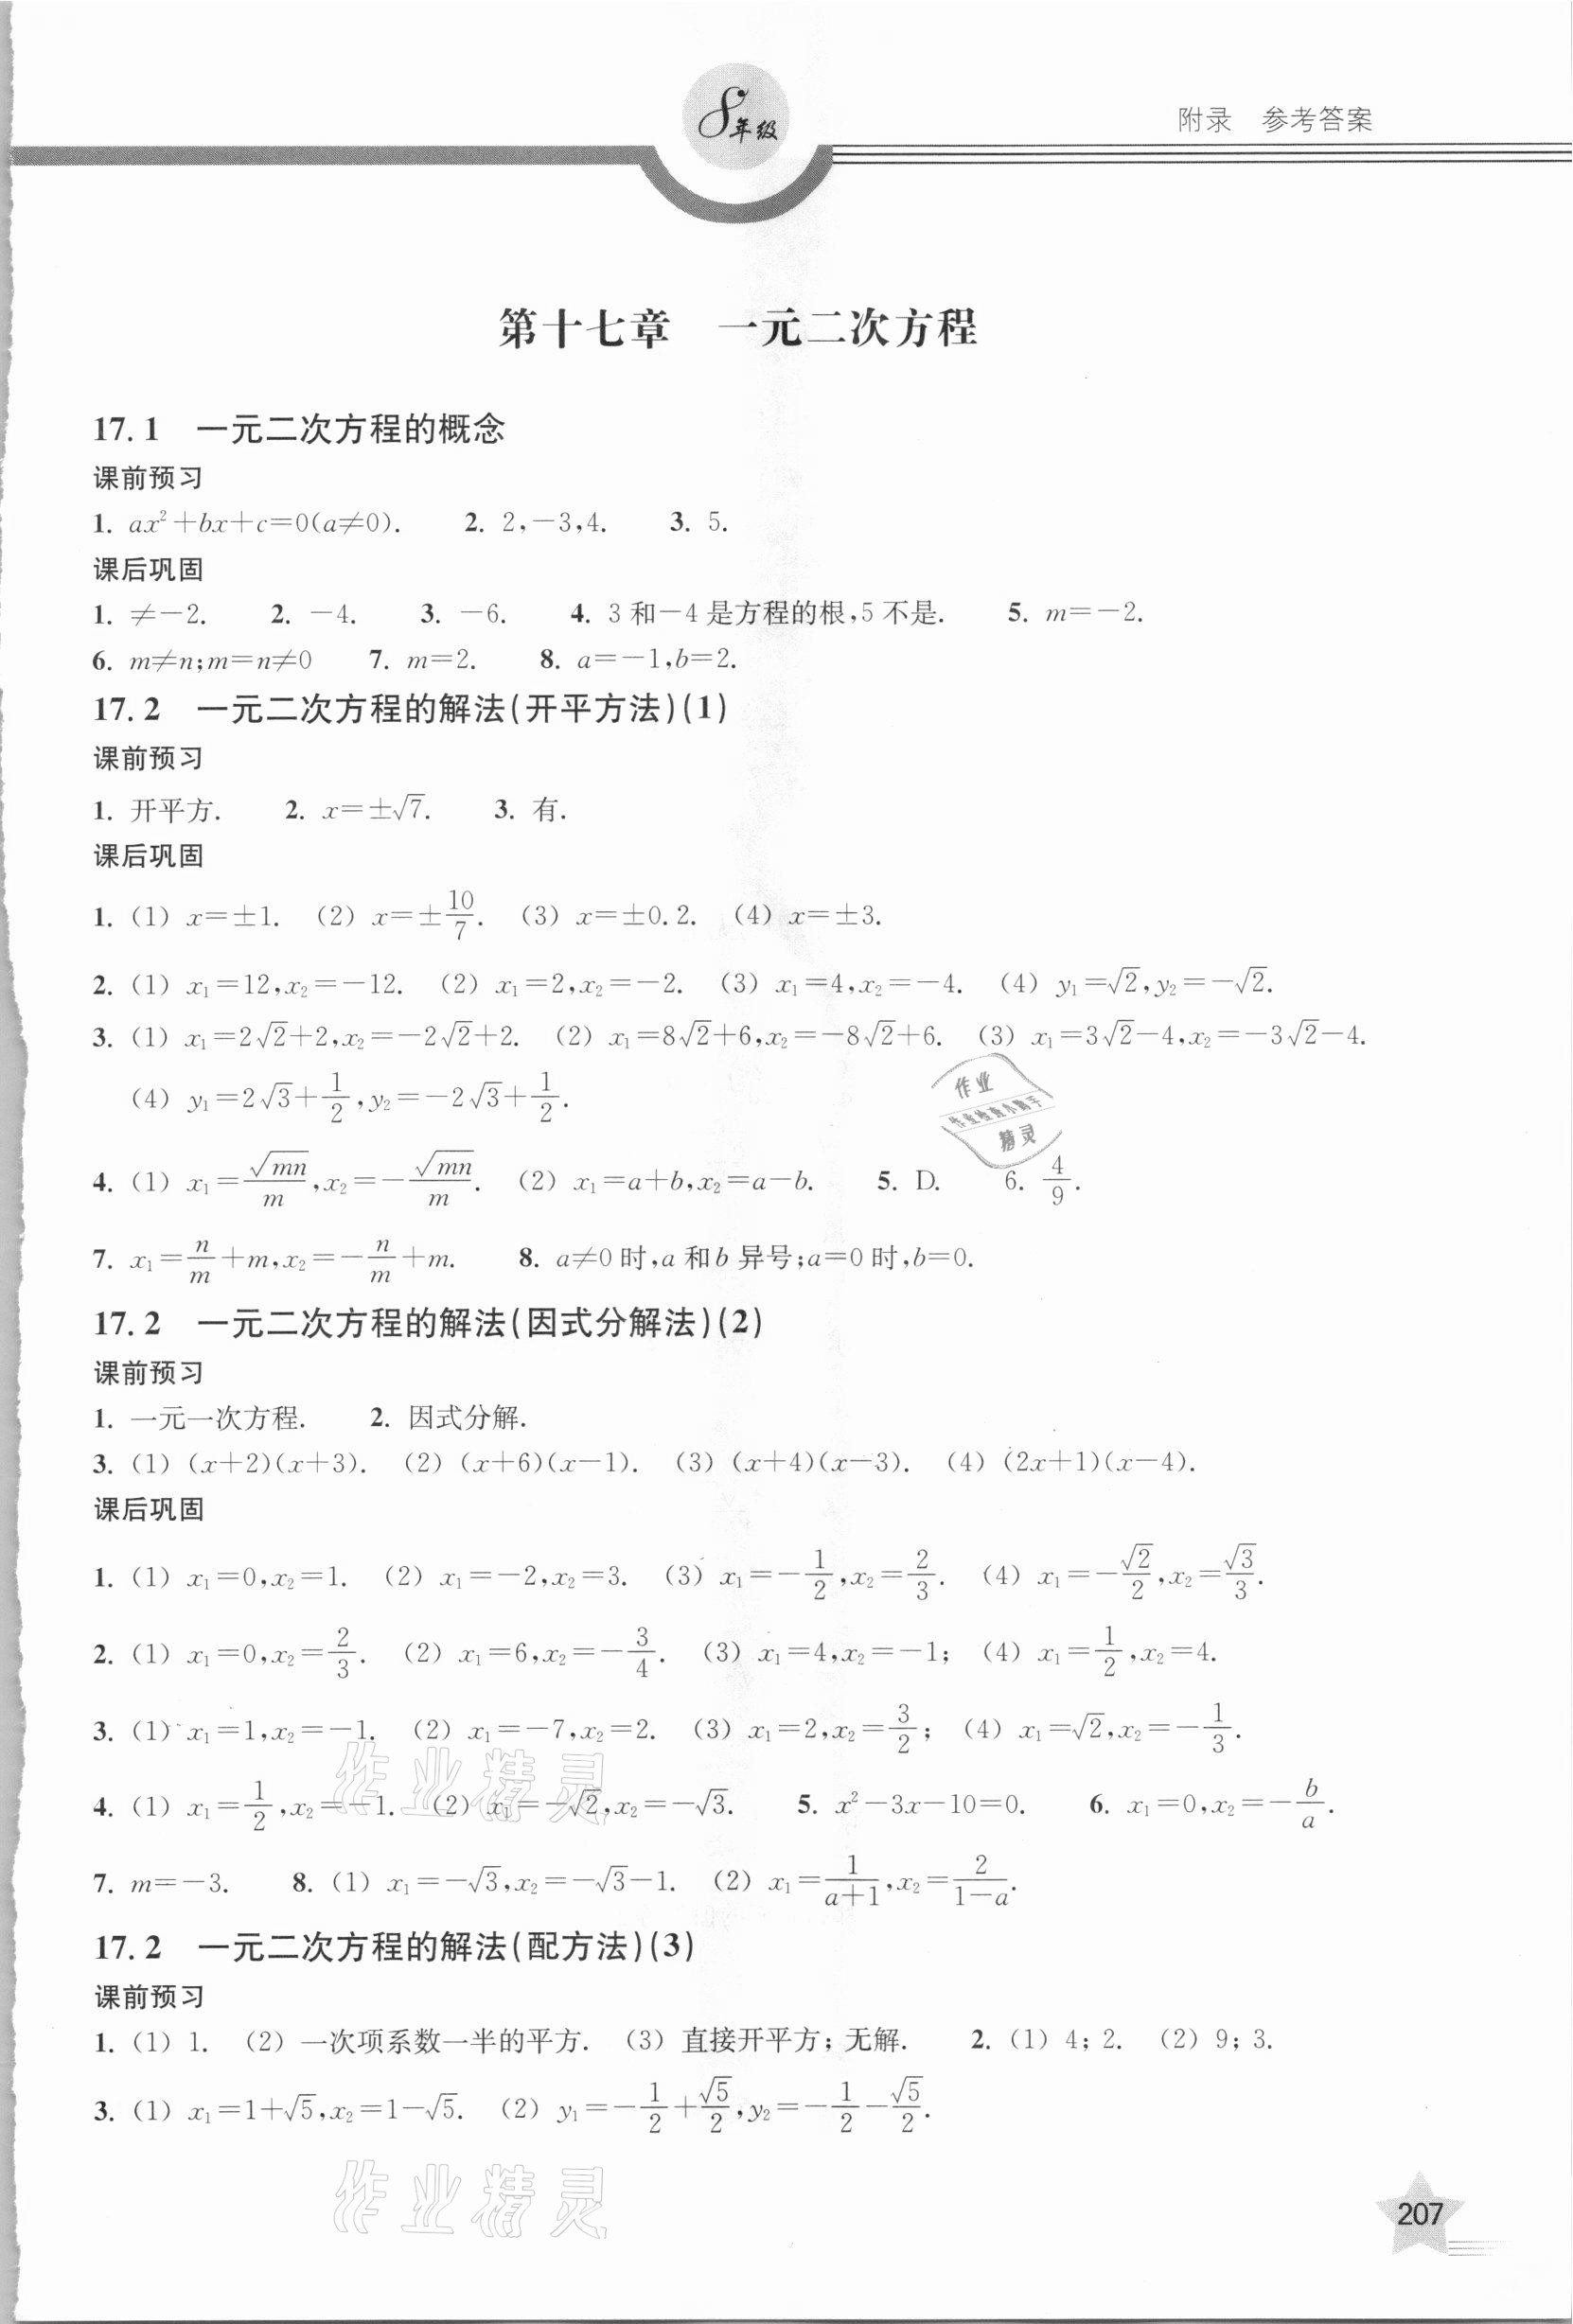 8年级
附录 参考答案
第十七章 一元二次方程
17.1 一元二次方程的概念
课前预习
1. ax²+bx+c=0(a≠0). 2. 2,-3,4. 3. 5.
课后巩固
1. ≠-2. 2. -4. 3. -6. 4. 3和-4是方程的根,5不是. 5. m=-2.
6. m≠n;m=n≠0 7. m=2. 8. a=-1,b=2.
17.2 一元二次方程的解法(开平方法)(1)
课前预习
1. 开平方. 2. x=±√7. 3. 有.
课后巩固
1. (1) x=±1. (2) x=±10/7. (3) x=±0.2. (4) x=±3.
2. (1) x₁=12,x₂=-12. (2) x₁=2,x₂=-2. (3) x₁=4,x₂=-4. (4) y₁=√2,y₂=-√2.
3. (1) x₁=2√2+2,x₂=-2√2+2. (2) x₁=8√2+6,x₂=-8√2+6. (3) x₁=3√2-4,x₂=-3√2-4.
(4) y₁=2√3+1/2,y₂=-2√3+1/2.
4. (1) x₁=√mn/m,x₂=-√mn/m. (2) x₁=a+b,x₂=a-b. 5. D. 6. 4/9.
7. x₁=n/m+m,x₂=-n/m+m. 8. a≠0时,a和b异号;a=0时,b=0.
17.2 一元二次方程的解法(因式分解法)(2)
课前预习
1. 一元一次方程. 2. 因式分解.
3. (1) (x+2)(x+3). (2) (x+6)(x-1). (3) (x+4)(x-3). (4) (2x+1)(x-4).
课后巩固
1. (1) x₁=0,x₂=1. (2) x₁=-2,x₂=3. (3) x₁=-1/2,x₂=2/3. (4) x₁=-√2/2,x₂=√3/3.
2. (1) x₁=0,x₂=2/3. (2) x₁=6,x₂=-3/4. (3) x₁=4,x₂=-1; (4) x₁=1/2,x₂=4.
3. (1) x₁=1,x₂=-1. (2) x₁=-7,x₂=2. (3) x₁=2,x₂=3/2; (4) x₁=√2,x₂=-1/3.
4. (1) x₁=1/2,x₂=-1. (2) x₁=-√2,x₂=-√3. 5. x²-3x-10=0. 6. x₁=0,x₂=-b/a.
7. m=-3. 8. (1) x₁=-√3,x₂=-√3-1. (2) x₁=1/(a+1),x₂=2/(1-a).
17.2 一元二次方程的解法(配方法)(3)
课前预习
1. (1) 1. (2) 一次项系数一半的平方. (3) 直接开平方; 无解. 2. (1) 4; 2. (2) 9; 3.
3. (1) x₁=1+√5,x₂=1-√5. (2) y₁=-1/2+√5/2,y₂=-1/2-√5/2.
207
作业
作业检查小助手
精灵
作业精灵
作业精灵